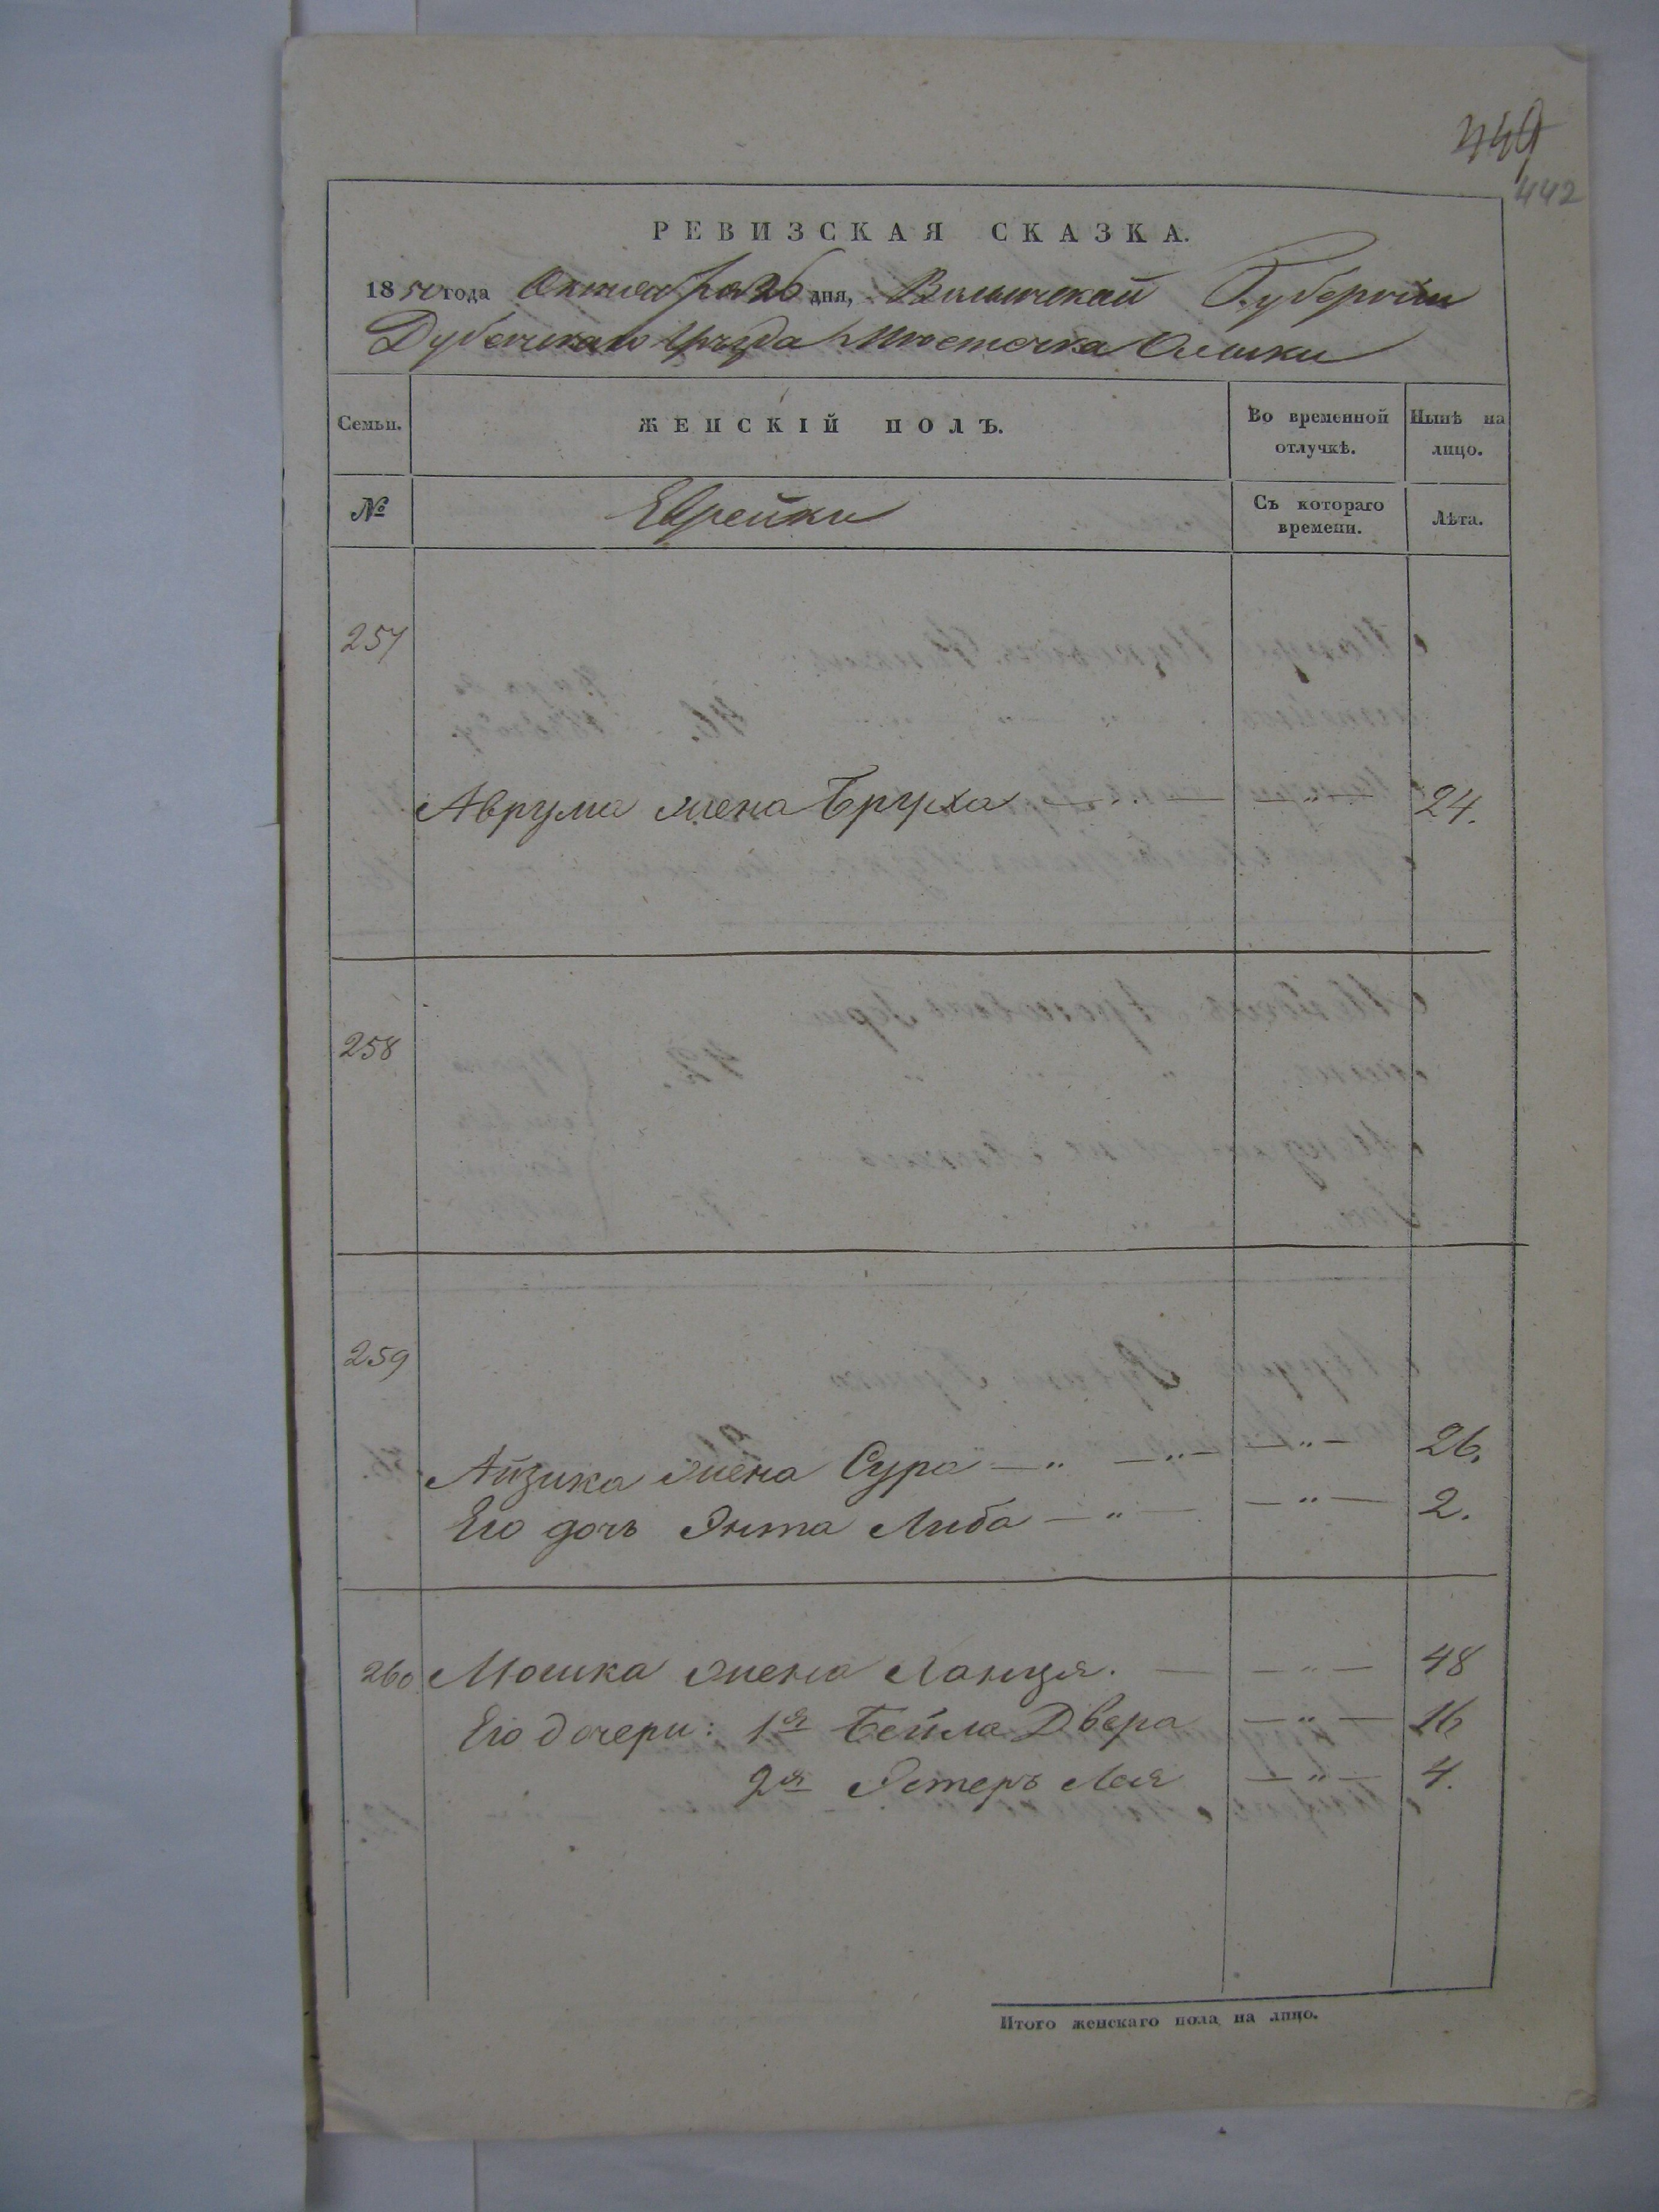 449
442
РЕВИЗСКАЯ СКАЗКА.
1850 года Октября 26 дня, Волынской Губернии
Дубенскаго Уезда Местечка Олыки
Семьи. ЖЕНСКІЙ ПОЛЪ. Во временной отлучкѣ. Нынѣ на лицо.
№ Еврейки Съ котораго времени. Лѣта.
257
Аврума жена Бруха — „ — — „ — 24.
258
259
Айзика жена Сура — „ — „ — — „ — 26.
Его дочь Энта Либа — „ — — „ — 2.
260 Мошка жена Ланця. — — „ — 48
Его дочери: 1я Бейла Двера — „ — 16
2я Эстеръ Лея — „ — 4.
Итого женскаго пола на лицо.